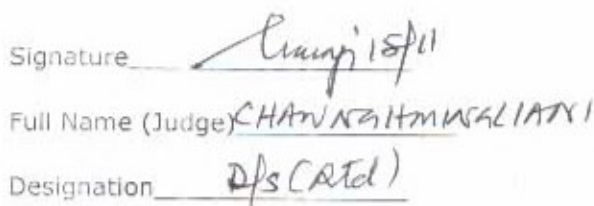 Signature 15/11
Full Name (Judge) CHAWNGHMINGLIANI
Designation D/S (Rtd)